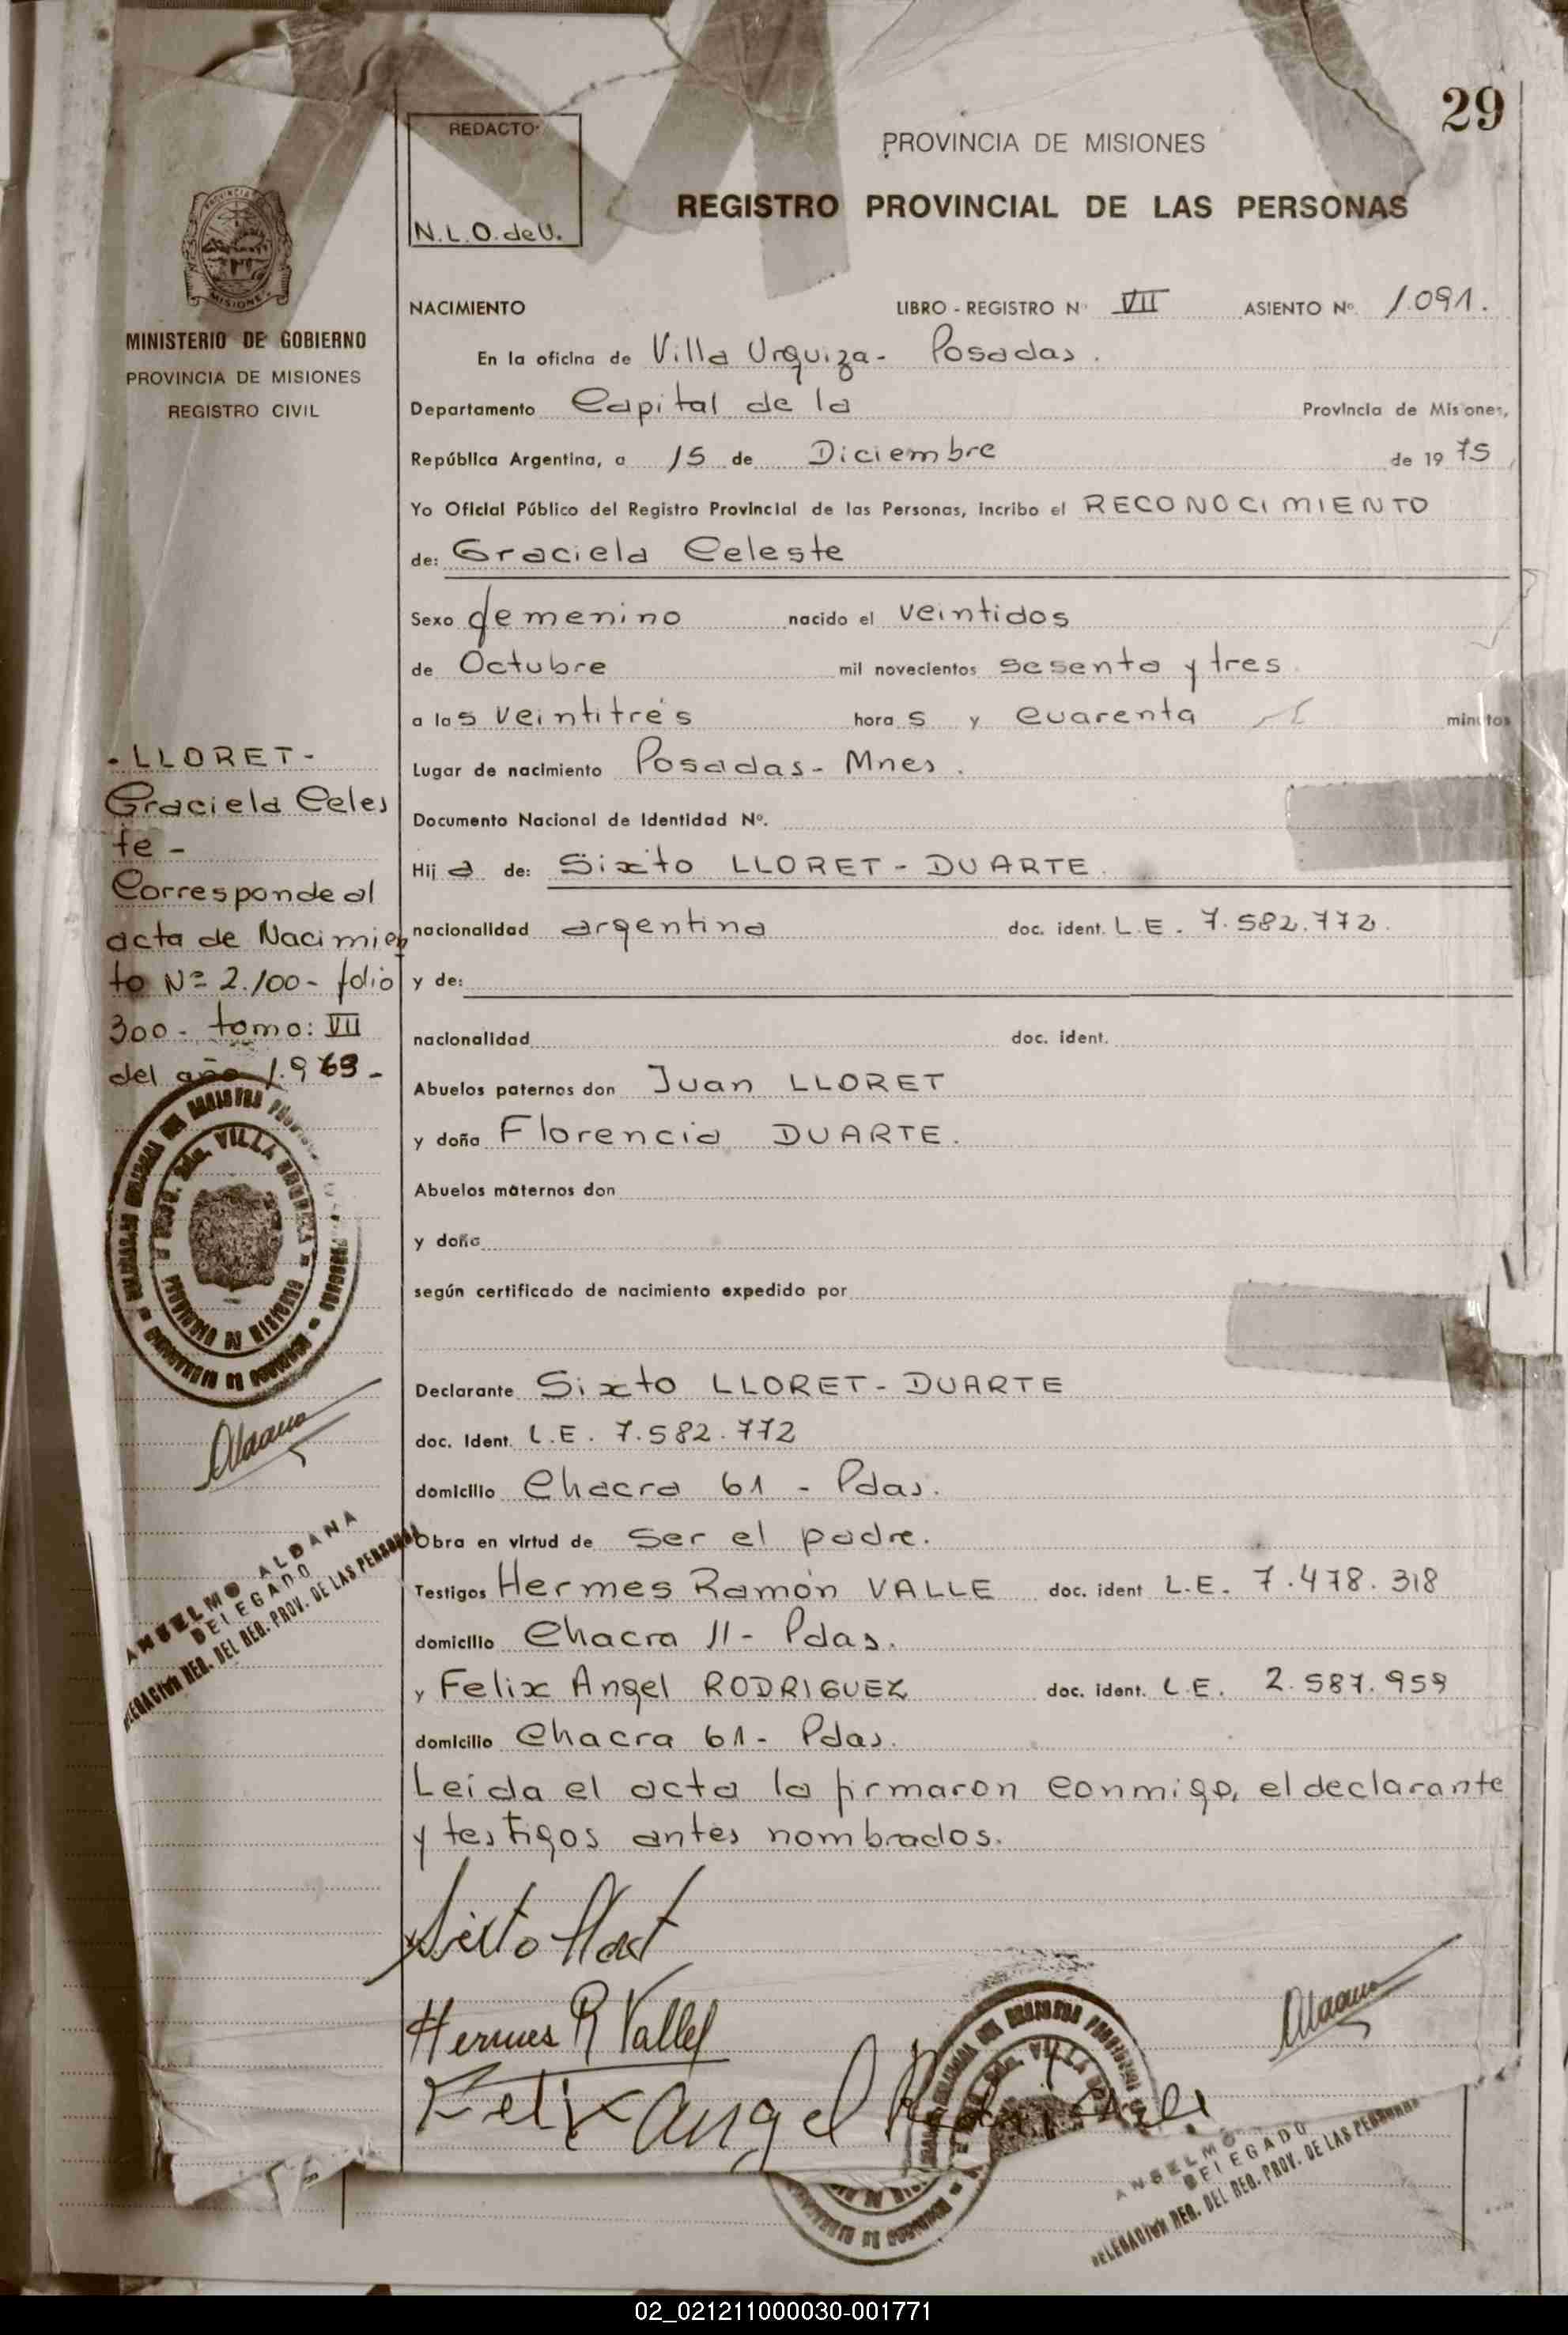 29
REDACTO
N.L.O. de U.
PROVINCIA DE MISIONES
REGISTRO PROVINCIAL DE LAS PERSONAS
MISIONES
MINISTERIO DE GOBIERNO
PROVINCIA DE MISIONES
REGISTRO CIVIL
NACIMIENTO LIBRO - REGISTRO Nº VII ASIENTO Nº 1.091.
En la oficina de Villa Urquiza - Posadas.
Departamento Capital de la Provincia de Misiones,
República Argentina, a 15 de Diciembre de 19 75
Yo Oficial Público del Registro Provincial de las Personas, incribo el RECONOCIMIENTO
de: Graciela Celeste
Sexo femenino nacido el veintidos
de Octubre mil novecientos sesenta y tres
a las veintitrés horas y cuarenta minutos
Lugar de nacimiento Posadas - Mnes.
Documento Nacional de Identidad Nº.
Hij a de: Sixto LLORET - DUARTE.
nacionalidad argentina doc. ident. L.E. 7.582.772.
y de:
nacionalidad doc. ident.
Abuelos paternos don Juan LLORET
y doña Florencia DUARTE.
Abuelos maternos don
y doña
según certificado de nacimiento expedido por
Declarante Sixto LLORET - DUARTE
doc. Ident. L.E. 7.582.772
domicilio Chacra 61 - Pdas.
Obra en virtud de ser el padre.
Testigos Hermes Ramón VALLE doc. ident L.E. 7.478.318
domicilio Chacra 11 - Pdas.
y Felix Angel RODRIGUEZ doc. ident. L.E. 2.587.959
domicilio Chacra 61 - Pdas.
Leída el acta la firmaron conmigo, el declarante
y testigos antes nombrados.
- LLORET -
Graciela Celes
te -
Corresponde al
acta de Nacimien
to Nº 2.100 - folio
300 - tomo: VII
del año 1.963 -
VILLA URQUIZA
PROVINCIA DE MISIONES
ANSELMO ALDANA
DELEGADO
DELEGACION REG. DEL REG. PROV. DE LAS PERSONAS
Sixto Lloret
Hermes R Valle
Felix angel Rodriguez
ANSELMO
DELEGADO
DELEGACION REG. DEL REG. PROV. DE LAS PERSONAS
02_021211000030-001771